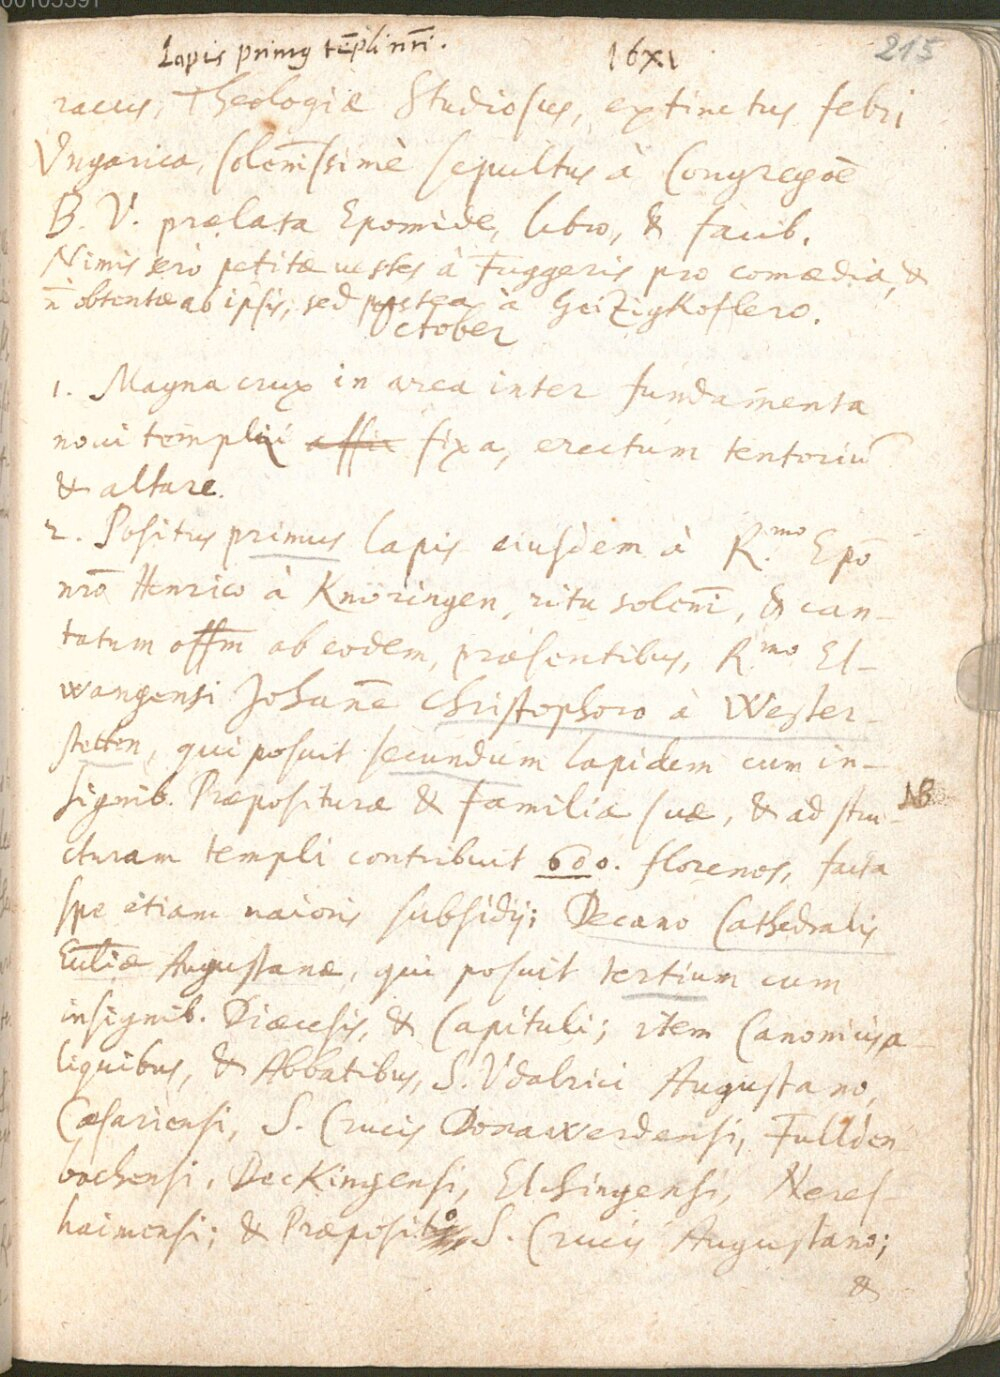 00105391
Lapis primꝰ tēpli nr̄i. 16x1 215
racus, Theologiæ Studiosus, extinctus febri
Vngarica, solem̄issimè sepultus à Congregōe
B. V. prælata Epomide, libro, & facib.
Nimis serò petitæ uestes à Fuggeris pro comædia, &
n̄ obtentæ ab ipsis, sed postea à Geizigkoflero.
October
1. Magna crux in area inter fundamenta
noui templi affix fixa, erectum tentoriū
& altare.
2. Positus primus lapis eiusdem à R.mo Epō
nrō Henrico à Knöringen, ritu solem̄i, & can-
tatum offm ab eodem, præsentibus, R.mo El-
wangensi Johan̄e Christophoro à Wester-
stetten, qui posuit secundum lapidem cum in-
signib. Præposituræ & familiæ suæ, & ad stru- NB
cturam templi contribuit 600. florenos, facta
spe etiam maioris subsidij; Decano Cathedralis
Eccliæ Augustanæ, qui posuit tertium cum
insignib. Diæcesis, & Capituli; item Canonicis a-
liquibus, & Abbatibus, S. Vdalrici Augustano,
Cæsariensi, S. Crucis Donawerdensi, Fullden
bachensi, Deckingensi, Elchingensi, Neres-
haimensi; & Præposito S. Crucis Augustano;
&